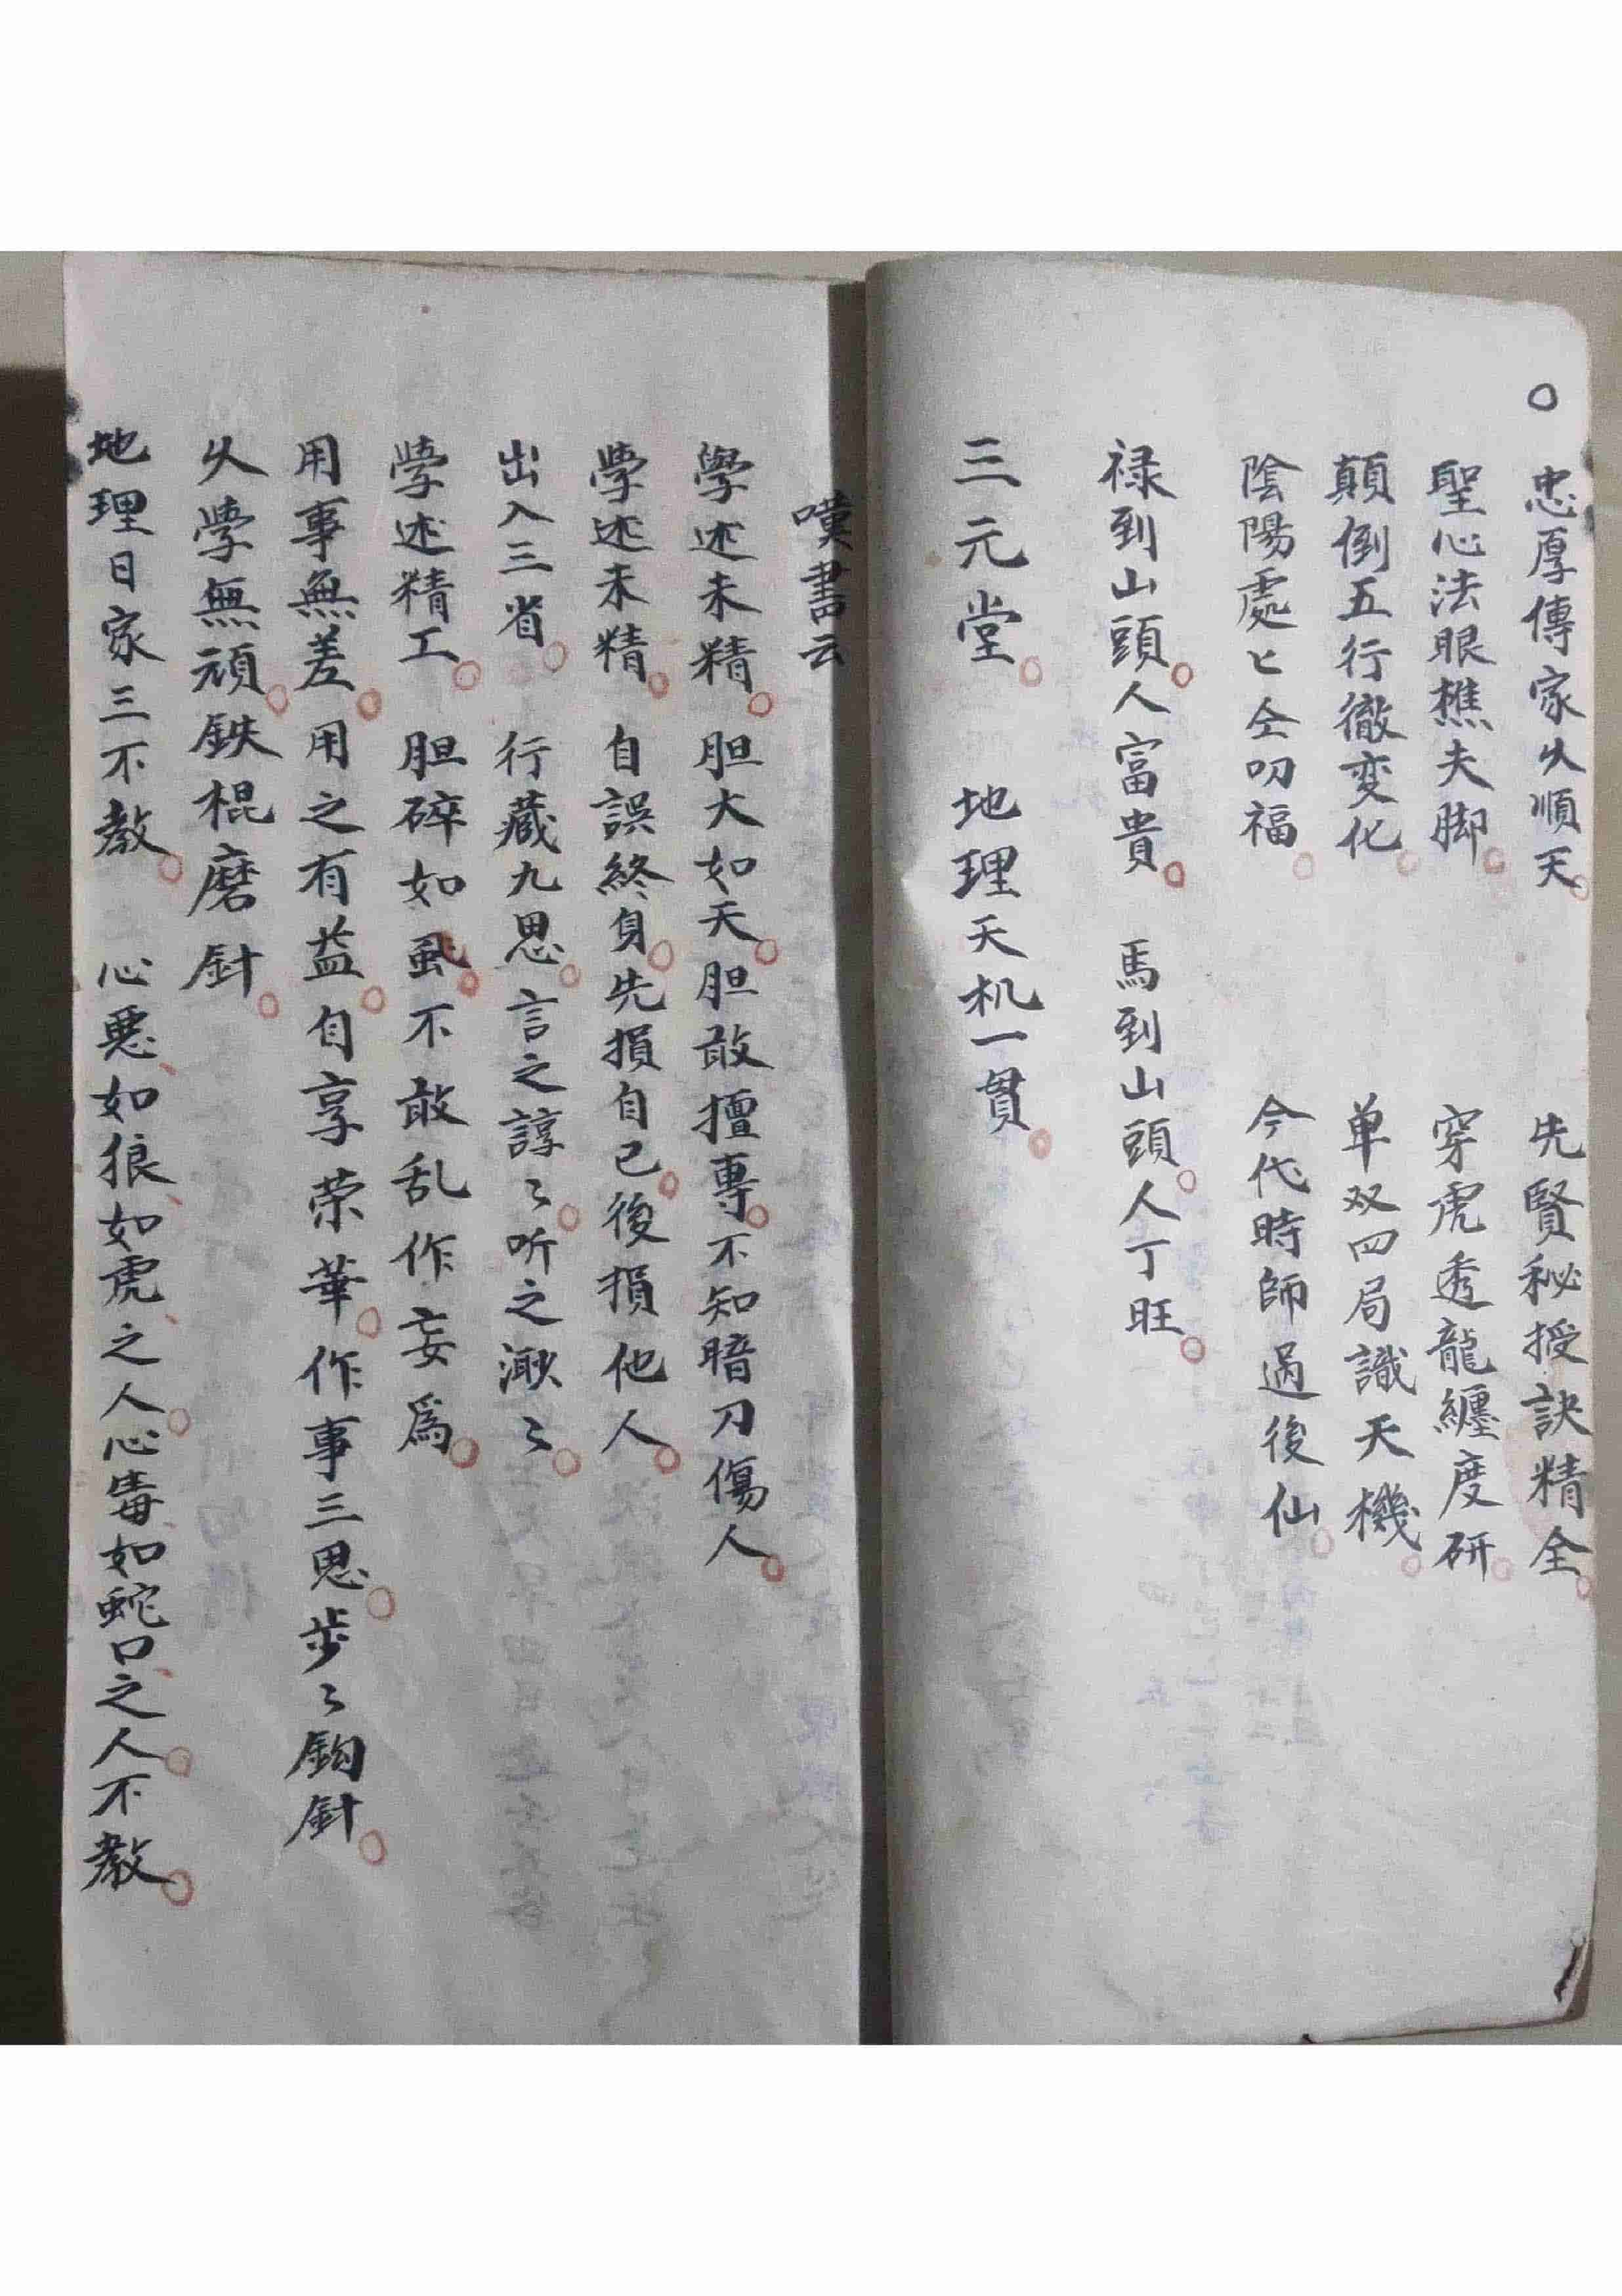 ○忠厚傳家久順天。先賢秘授訣精全。
聖心法眼樵夫脚。穿虎透龍纏度研。
顛倒五行徹变化。单双四局識天機。
陰陽處匕仝叨福。今代時師過後仙。
禄到山頭。人富貴。馬到山頭。人丁旺。
三元堂。地理天机一貫。
嘆書云
學述未精。胆大如天。胆敢擅專。不知暗刀傷人。
學述未精。自誤終身。先損自己。後損他人。
出入三省。行藏九思。言之諄々。听之漱々。
學述精工。胆碎如虱。不敢乱作妄爲。
用事無差。用之有益。自享荣華。作事三思。步々鈎針。
久學無頑。鉄棍磨針。
地理日家三不教。心悪、如狼、如虎、之人。心毒、如蛇、口之人。不教。